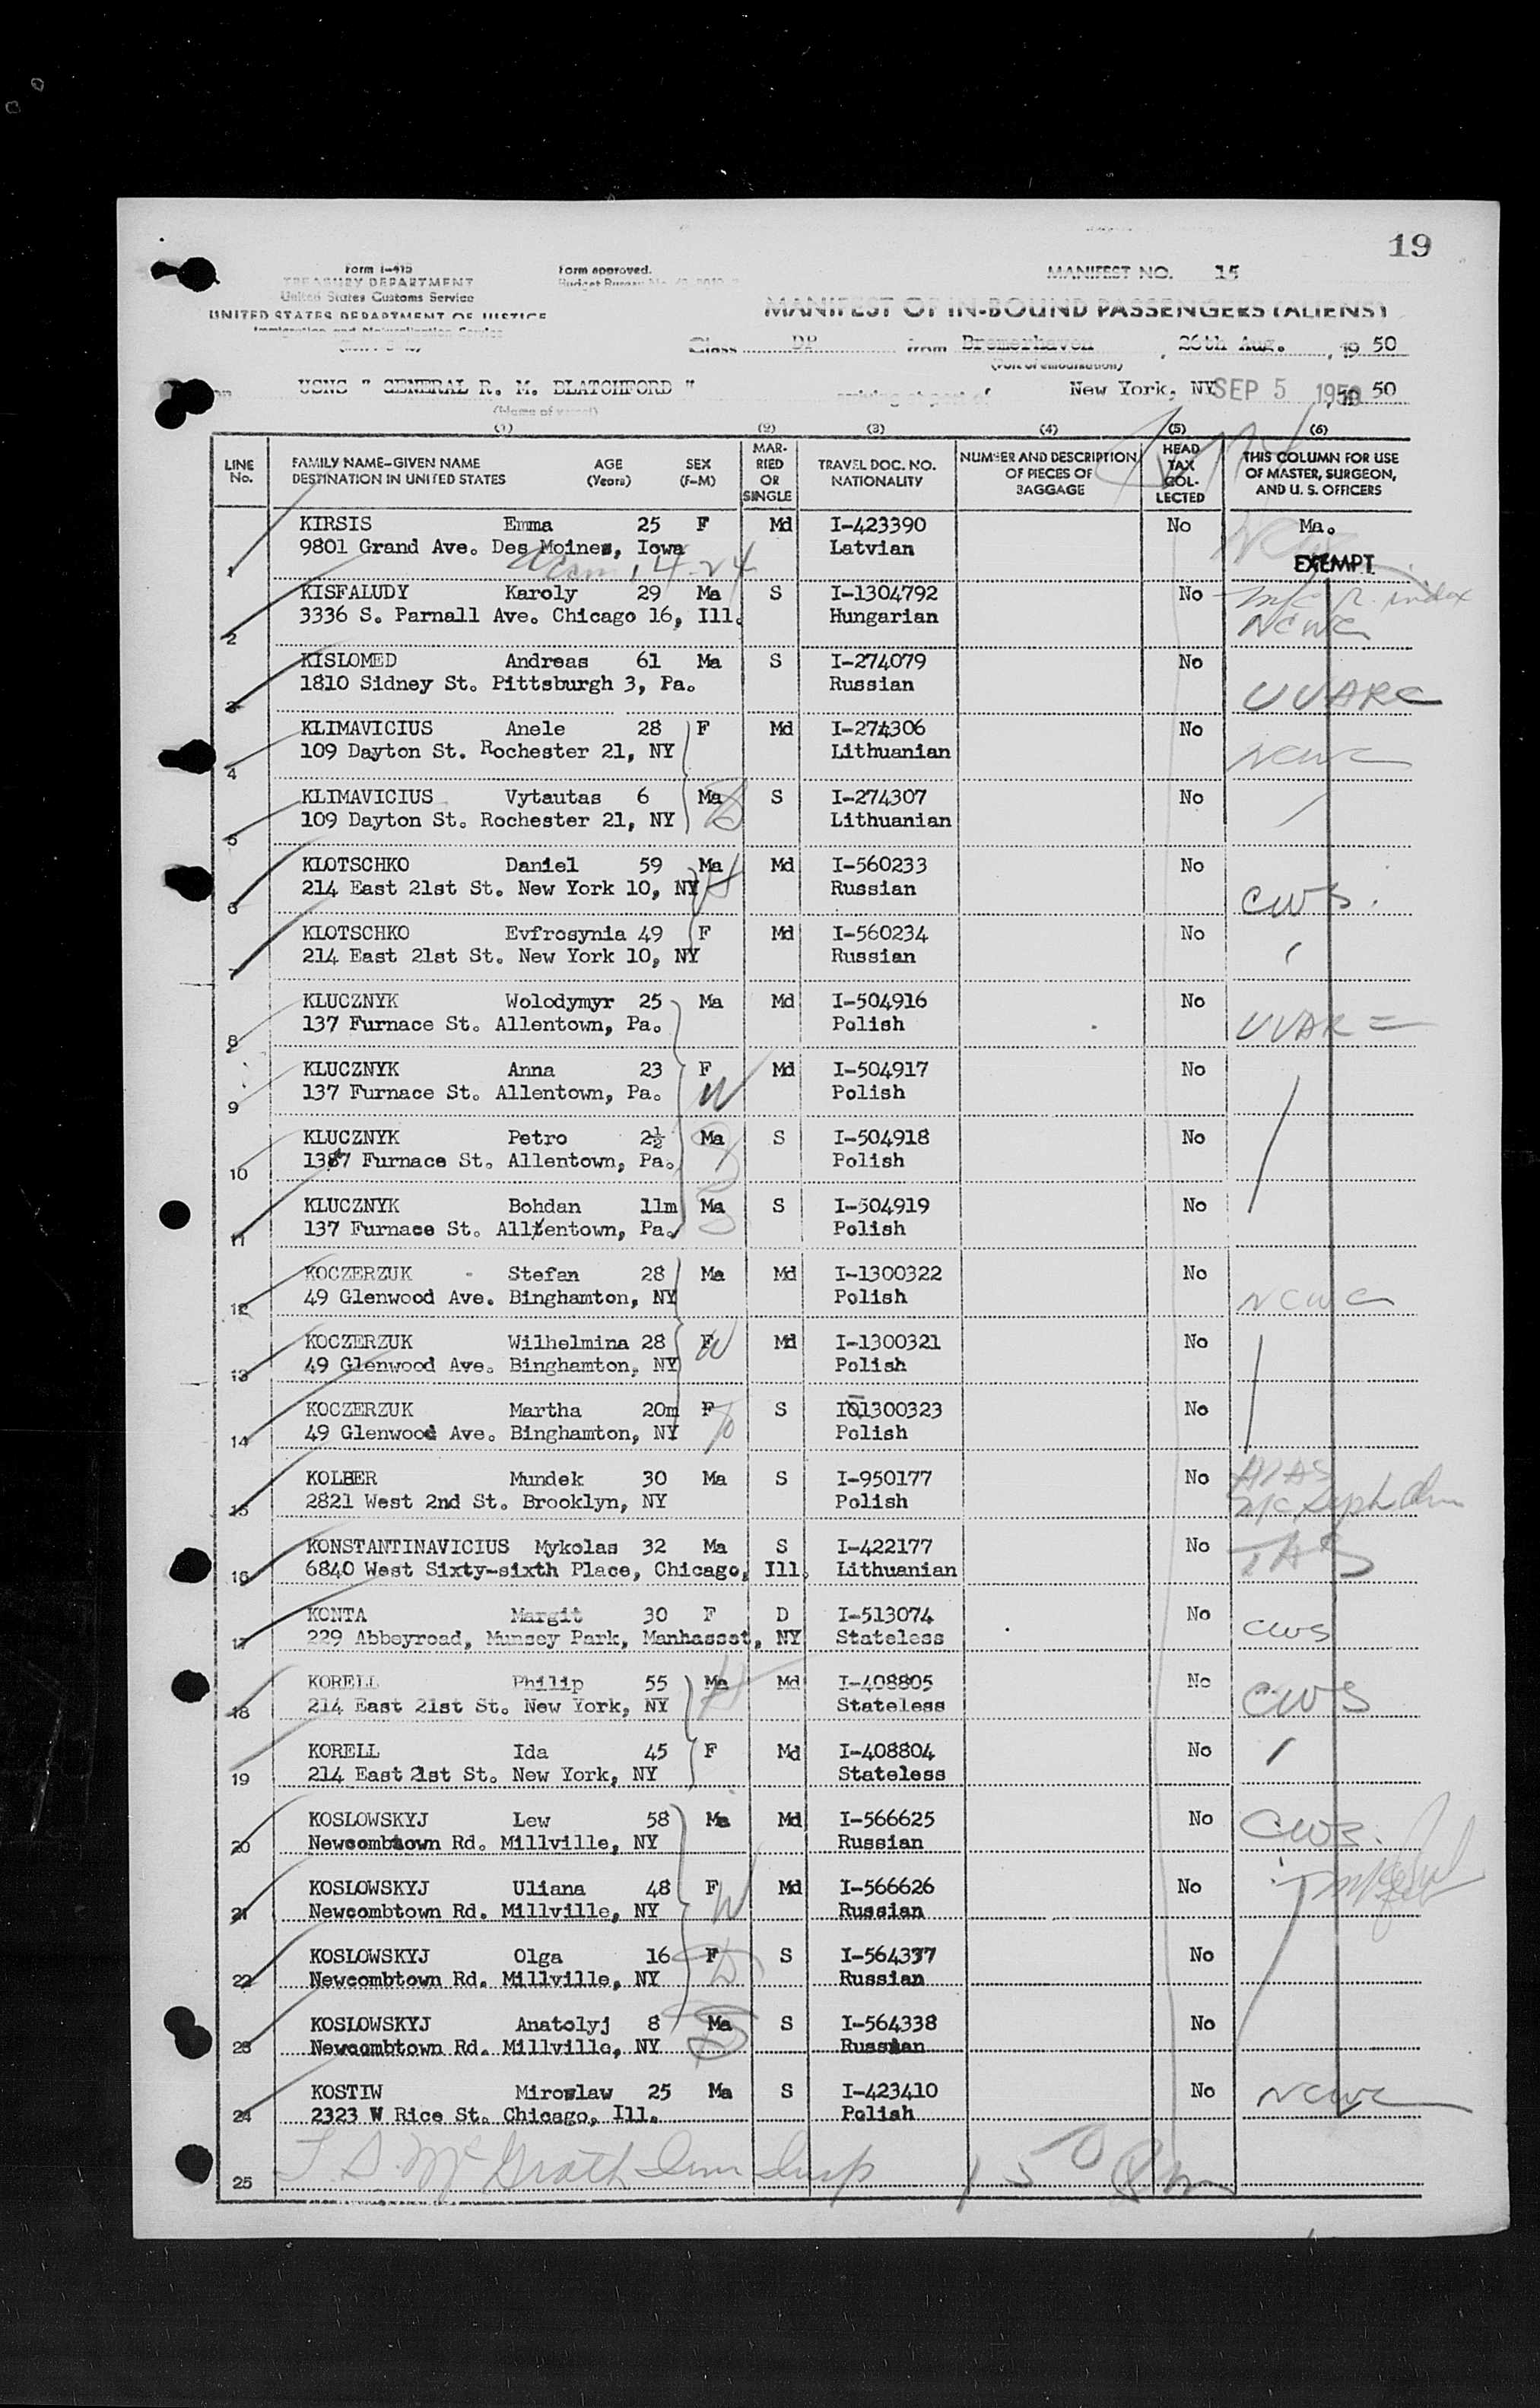 19
Form I-415
TREASURY DEPARTMENT
United States Customs Service
UNITED STATES DEPARTMENT OF JUSTICE
Immigration and Naturalization Service
Form approved.
Budget Bureau No.
MANIFEST NO. 15
MANIFEST OF IN-BOUND PASSENGERS (ALIENS)
Class DP from Bremerhaven, 26th Aug., 19 50
(Port of embarkation)
on USNS " GENERAL R. M. BLATCHFORD " arriving at port of New York, NY SEP 5 1950, 19 50
(Name of vessel)
(1) (2) (3) (4) (5) (6)
LINE No. FAMILY NAME-GIVEN NAME DESTINATION IN UNITED STATES AGE (Years) SEX (F-M) MARRIED OR SINGLE TRAVEL DOC. NO. NATIONALITY NUMBER AND DESCRIPTION OF PIECES OF BAGGAGE HEAD TAX COLLECTED THIS COLUMN FOR USE OF MASTER, SURGEON, AND U. S. OFFICERS
1 KIRSIS Emma 25 F Md I-423390 No Ma.
9801 Grand Ave. Des Moines, Iowa Latvian EXEMPT
2 KISFALUDY Karoly 29 Ma S I-1304792 No index
3336 S. Parnall Ave. Chicago 16, Ill. Hungarian NCWC
3 KISLOMED Andreas 61 Ma S I-274079 No
1810 Sidney St. Pittsburgh 3, Pa. Russian UUARC
4 KLIMAVICIUS Anele 28 F Md I-274306 No
109 Dayton St. Rochester 21, NY Lithuanian NCWC
5 KLIMAVICIUS Vytautas 6 Ma S I-274307 No
109 Dayton St. Rochester 21, NY Lithuanian
6 KLOTSCHKO Daniel 59 Ma Md I-560233 No
214 East 21st St. New York 10, NY Russian CWS.
7 KLOTSCHKO Evfrosynia 49 F Md I-560234 No
214 East 21st St. New York 10, NY Russian
8 KLUCZNYK Wolodymyr 25 Ma Md I-504916 No
137 Furnace St. Allentown, Pa. Polish
9 KLUCZNYK Anna 23 F Md I-504917 No
137 Furnace St. Allentown, Pa. W Polish
10 KLUCZNYK Petro 2½ Ma S I-504918 No
1387 Furnace St. Allentown, Pa. Polish
11 KLUCZNYK Bohdan 11m Ma S I-504919 No
137 Furnace St. Alltentown, Pa. Polish
12 KOCZERZUK Stefan 28 Ma Md I-1300322 No
49 Glenwood Ave. Binghamton, NY Polish NCWC
13 KOCZERZUK Wilhelmina 28 F W Md I-1300321 No
49 Glenwood Ave. Binghamton, NY Polish
14 KOCZERZUK Martha 20m F S I01300323 No
49 Glenwood Ave. Binghamton, NY Polish
15 KOLBER Mundek 30 Ma S I-950177 No HIAS
2821 West 2nd St. Brooklyn, NY Polish
16 KONSTANTINAVICIUS Mykolas 32 Ma S I-422177 No
6840 West Sixty-sixth Place, Chicago, Ill. Lithuanian
17 KONTA Margit 30 F D I-513074 No
229 Abbeyroad, Munsey Park, Manhasset, NY Stateless CWS
18 KORELL Philip 55 Ma Md I-408805 No
214 East 21st St. New York, NY Stateless CWS
19 KORELL Ida 45 F Md I-408804 No
214 East 21st St. New York, NY Stateless
20 KOSLOWSKYJ Lew 58 Ma Md I-566625 No CWS.
Newcombtown Rd. Millville, NY Russian
21 KOSLOWSKYJ Uliana 48 F W Md I-566626 No
Newcombtown Rd. Millville, NY Russian
22 KOSLOWSKYJ Olga 16 F S I-564337 No
Newcombtown Rd. Millville, NY Russian
23 KOSLOWSKYJ Anatolyj 8 Ma S I-564338 No
Newcombtown Rd. Millville, NY Russian
24 KOSTIW Miroslaw 25 Ma S I-423410 No NCWC
2323 W Rice St. Chicago, Ill. Polish
25 McGrath Imm Insp 1 50 Pm